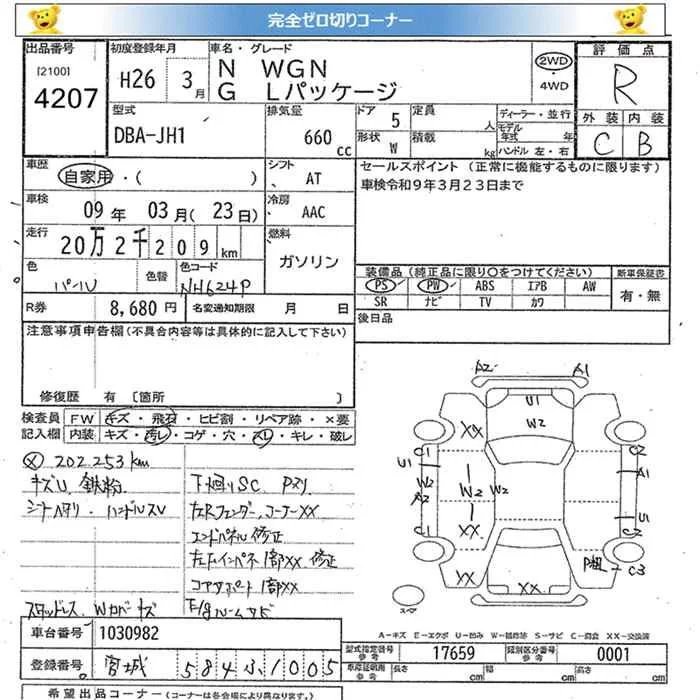 完全ゼロ切りコーナー
出品番号 初度登録年月 車名・グレード 評価点
[2100]
4207
H26 3月
N WGN
G Lパッケージ
2WD
・
4WD
R
型式 排気量 ドア 5 定員 人 ディーラー・並行
DBA-JH1 660 cc
形状 W 積載 kg
モデル年式 年
ハンドル 左・右
外装 内装
C B
車歴 自家用・( )
シフト AT
セールスポイント (正常に機能するものに限ります)
車検令和9年3月23日まで
車検 09年 03月(23日)
冷房 AAC
走行 20万2千209km
燃料 ガソリン
色 パール 色替 色コード NH624P
装備品(純正品に限り〇をつけてください) 新車保証書
PS PW ABS エアB AW
SR ナビ TV カワ
有・無
R券 8,680円 名変通知期限 月 日
後日品
注意事項申告欄(不具合内容等は具体的に記入して下さい)
修復歴 有 [箇所 ]
検査員 FW キズ・飛石・ヒビ割・リペア跡・×要
記入欄 内装 キズ・汚レ・コゲ・穴・スレ・キレ・破レ
202253km
キズU 鉄粉
シートヘタリ・ハンドルスレ
下廻りSC Pスリ
左Rフェンダー、コーナーXX
エンドパネル修正
コアサポート1部XX
スタッドレス Wカバーキズ
A2 A1
U1
W2
XX
C1 C2
U1 W2 A2
W2 W2
A1
U1
C1 C2
XX
XX XX
P粗 C3
スペア
A-キズ E-エクボ U-凹み W-補修跡 S-サビ C-腐食 XX-交換済
車台番号 1030982
型式指定番号 参考 17659 類別区分番号 参考 0001
登録番号 宮城 584 1005
車庫証明用 参考 長さ cm 幅 cm 高さ cm
希望出品コーナー(コーナーは各会場により異なります。)